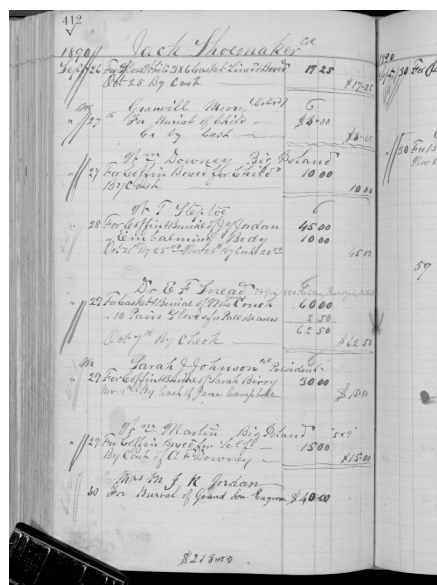 412
1890 Jack Shoemaker cd
Sept 26 For Gloss White 3x6 Casket Lined & Boxed 17 25
Oct 25 By Cash $17.25
Granvill Moore Col'd
27 For Burial of Child $8.00
Cr by Cash $8.00
Wm Downey Big Island
27 For Coffin Boxed for Child 10 00
By Cash 10 00
W T Steptoe
28 For Coffin & Burial of J Jordan 45.00
Embalming Body 10 00
By Cash 20 00
45 00
Dr E F Snead
29 For Casket & Burial of Mrs Couch 60 00
10 Pairs Gloves for Pall Bearers 2 50
62 50
Oct 7th By Check $62.50
Sarah J Johnson President
29 For Coffin & Burial of Sarah Berry 30 00
By Cash of Jane Campbell
Wm Martin Big Island 5x9
29 For Coffin Boxed for Self 15 00
By Cash of A F Downey $15.00
Mrs M J K Jordan
30 For Burial of Grand Son Eugene $40 00
$218.00
1890
30 For
30 For
59